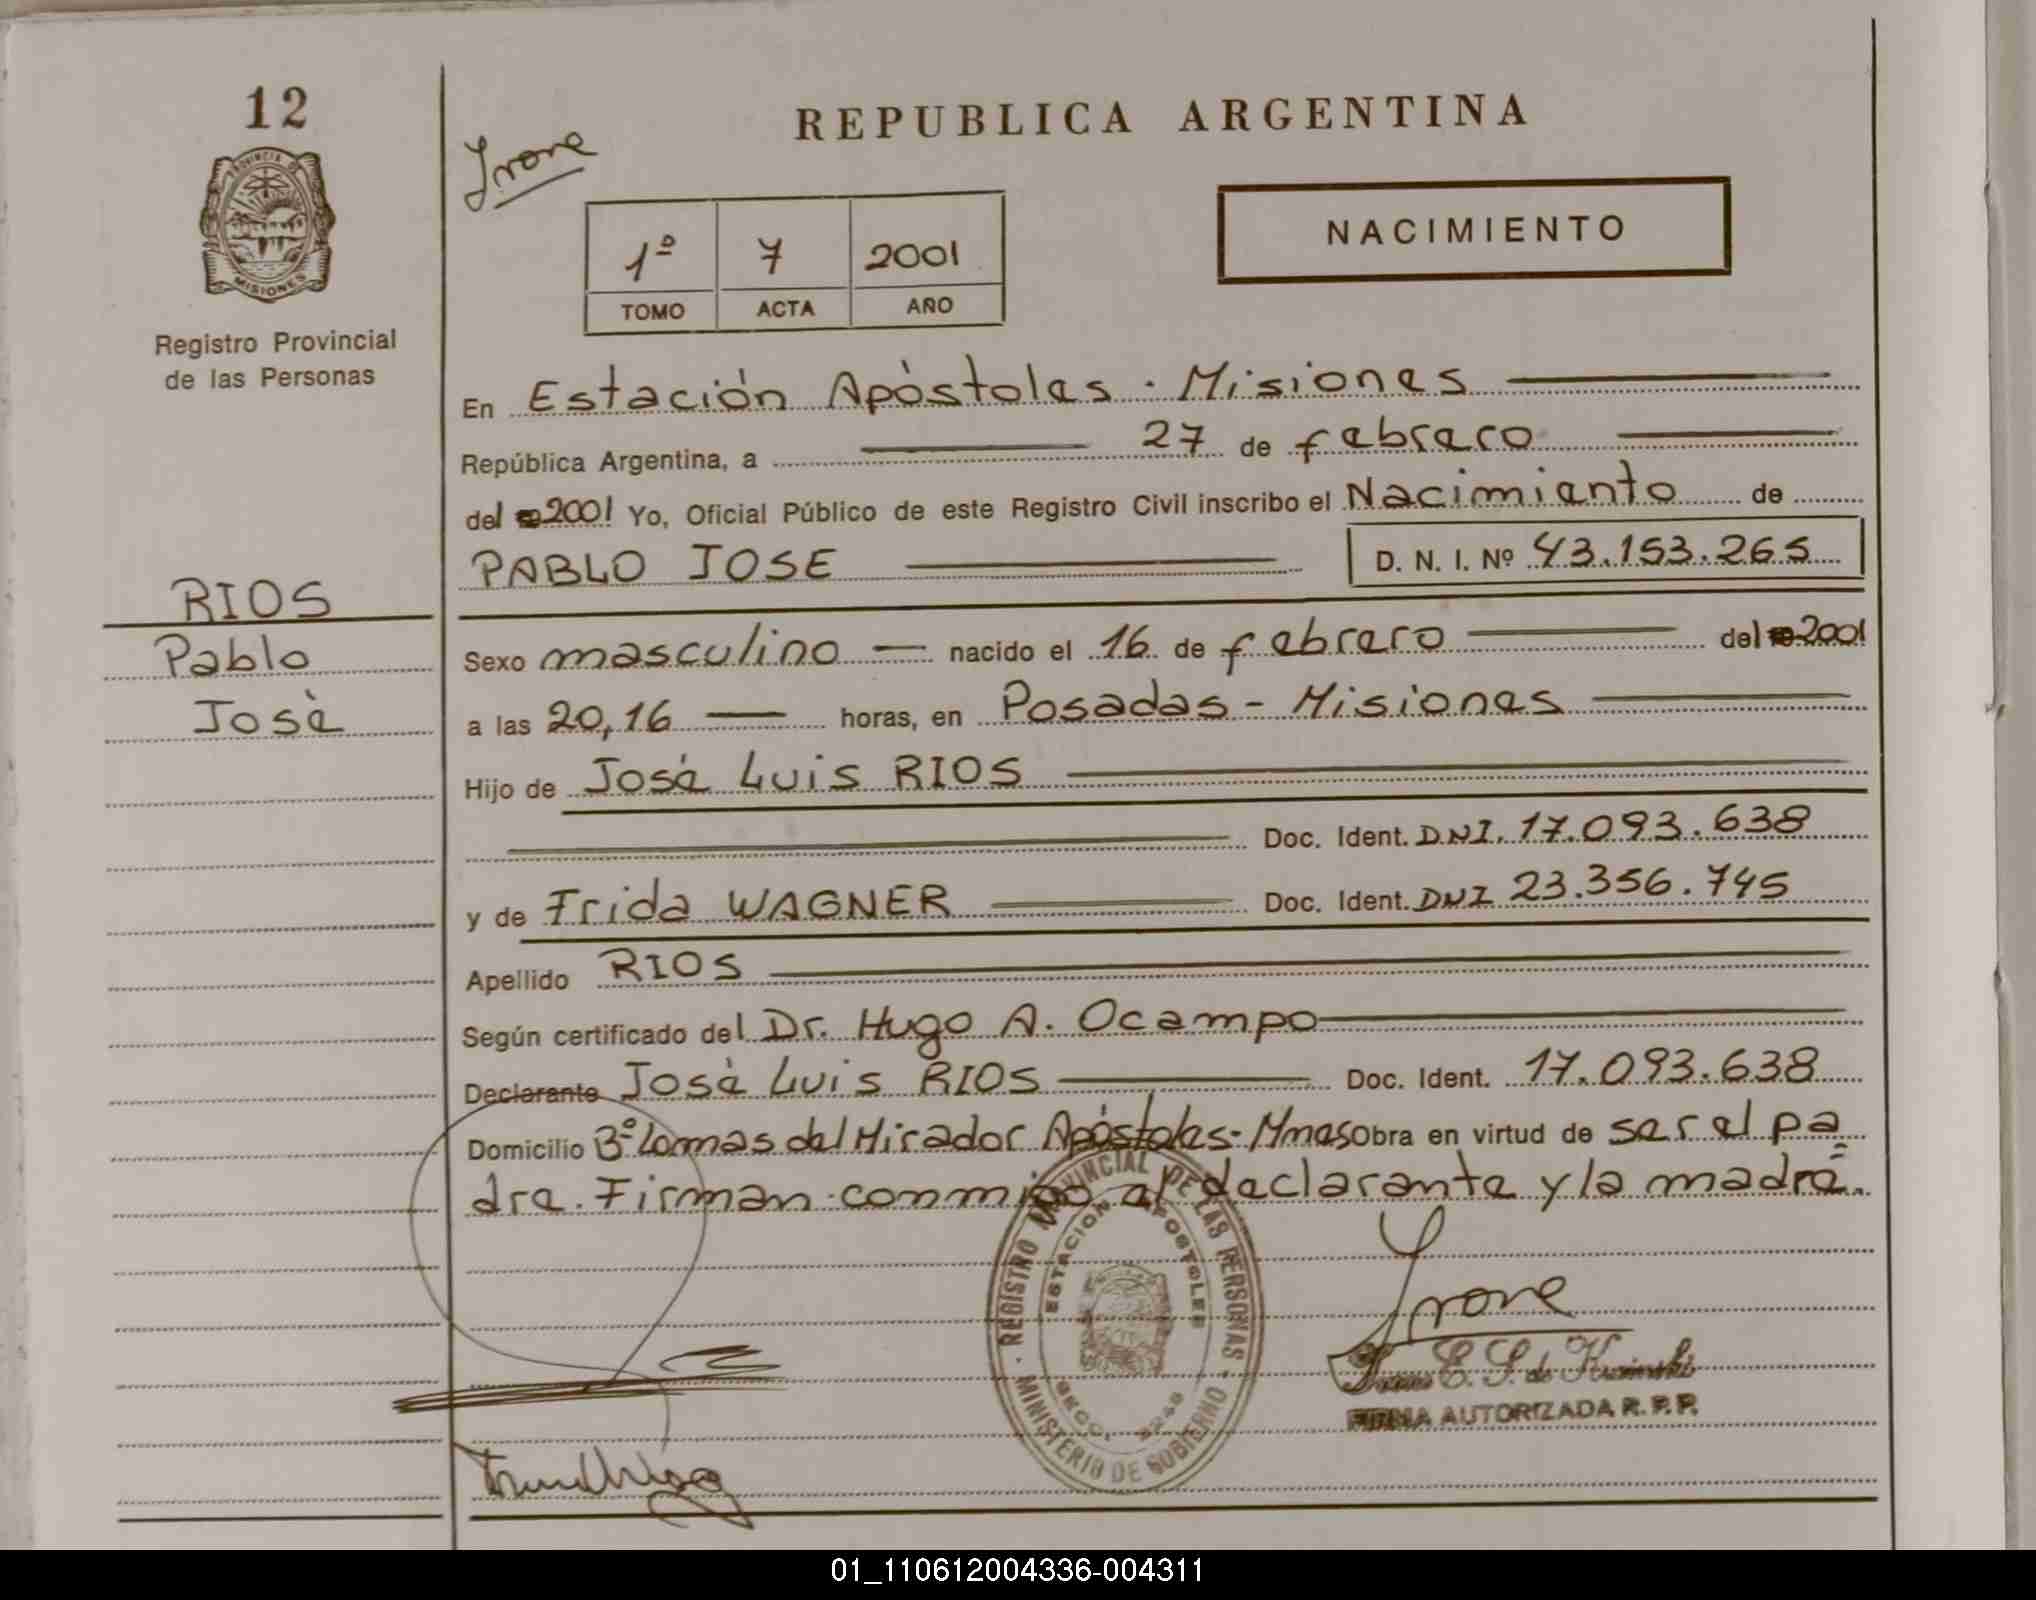 12
REPUBLICA ARGENTINA
Irene
PROVINCIA DE
MISIONES
1º 7 2001
TOMO ACTA AÑO
NACIMIENTO
Registro Provincial
de las Personas
En Estación Apóstoles - Misiones
República Argentina, a 27 de febrero
del 2001 Yo, Oficial Público de este Registro Civil inscribo el Nacimiento de
PABLO JOSE D. N. I. Nº 43.153.265
RIOS
Pablo
José
Sexo masculino nacido el 16 de febrero del 2001
a las 20,16 horas, en Posadas - Misiones
Hijo de José Luis RIOS
Doc. Ident. DNI. 17.093.638
y de Frida WAGNER Doc. Ident. DNI 23.356.745
Apellido RIOS
Según certificado del Dr. Hugo A. Ocampo
Declarante José Luis RIOS Doc. Ident. 17.093.638
Domicilio Bº Lomas del Mirador Apóstoles - Mnes Obra en virtud de ser el pa
dre. Firman conmigo el declarante y la madre.
REGISTRO PROVINCIAL DE LAS PERSONAS
ESTACION APOSTOLES
MINISTERIO DE GOBIERNO
Irene
FIRMA AUTORIZADA R. P. P.
01_110612004336-004311